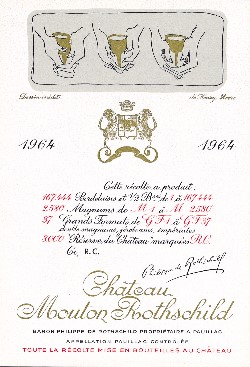 Dessin inédit de Henry Moore
1964 1964
Cette récolte a produit:
167.444 Bordelaises et ½ Bses de 1 à 167.444
2.580 Magnums de M 1 à M 2580
37 Grands Formats de G F 1 à G F 37
double-magnums, jéroboams, impériales
3000 "Réserve du Château" marquées R.C.
Ce, R. C.
Philippe de Rothschild
Château
Mouton Rothschild
BARON PHILIPPE DE ROTHSCHILD PROPRIÉTAIRE A PAUILLAC
APPELLATION PAUILLAC CONTRÔLÉE
TOUTE LA RÉCOLTE MISE EN BOUTEILLES AU CHÂTEAU